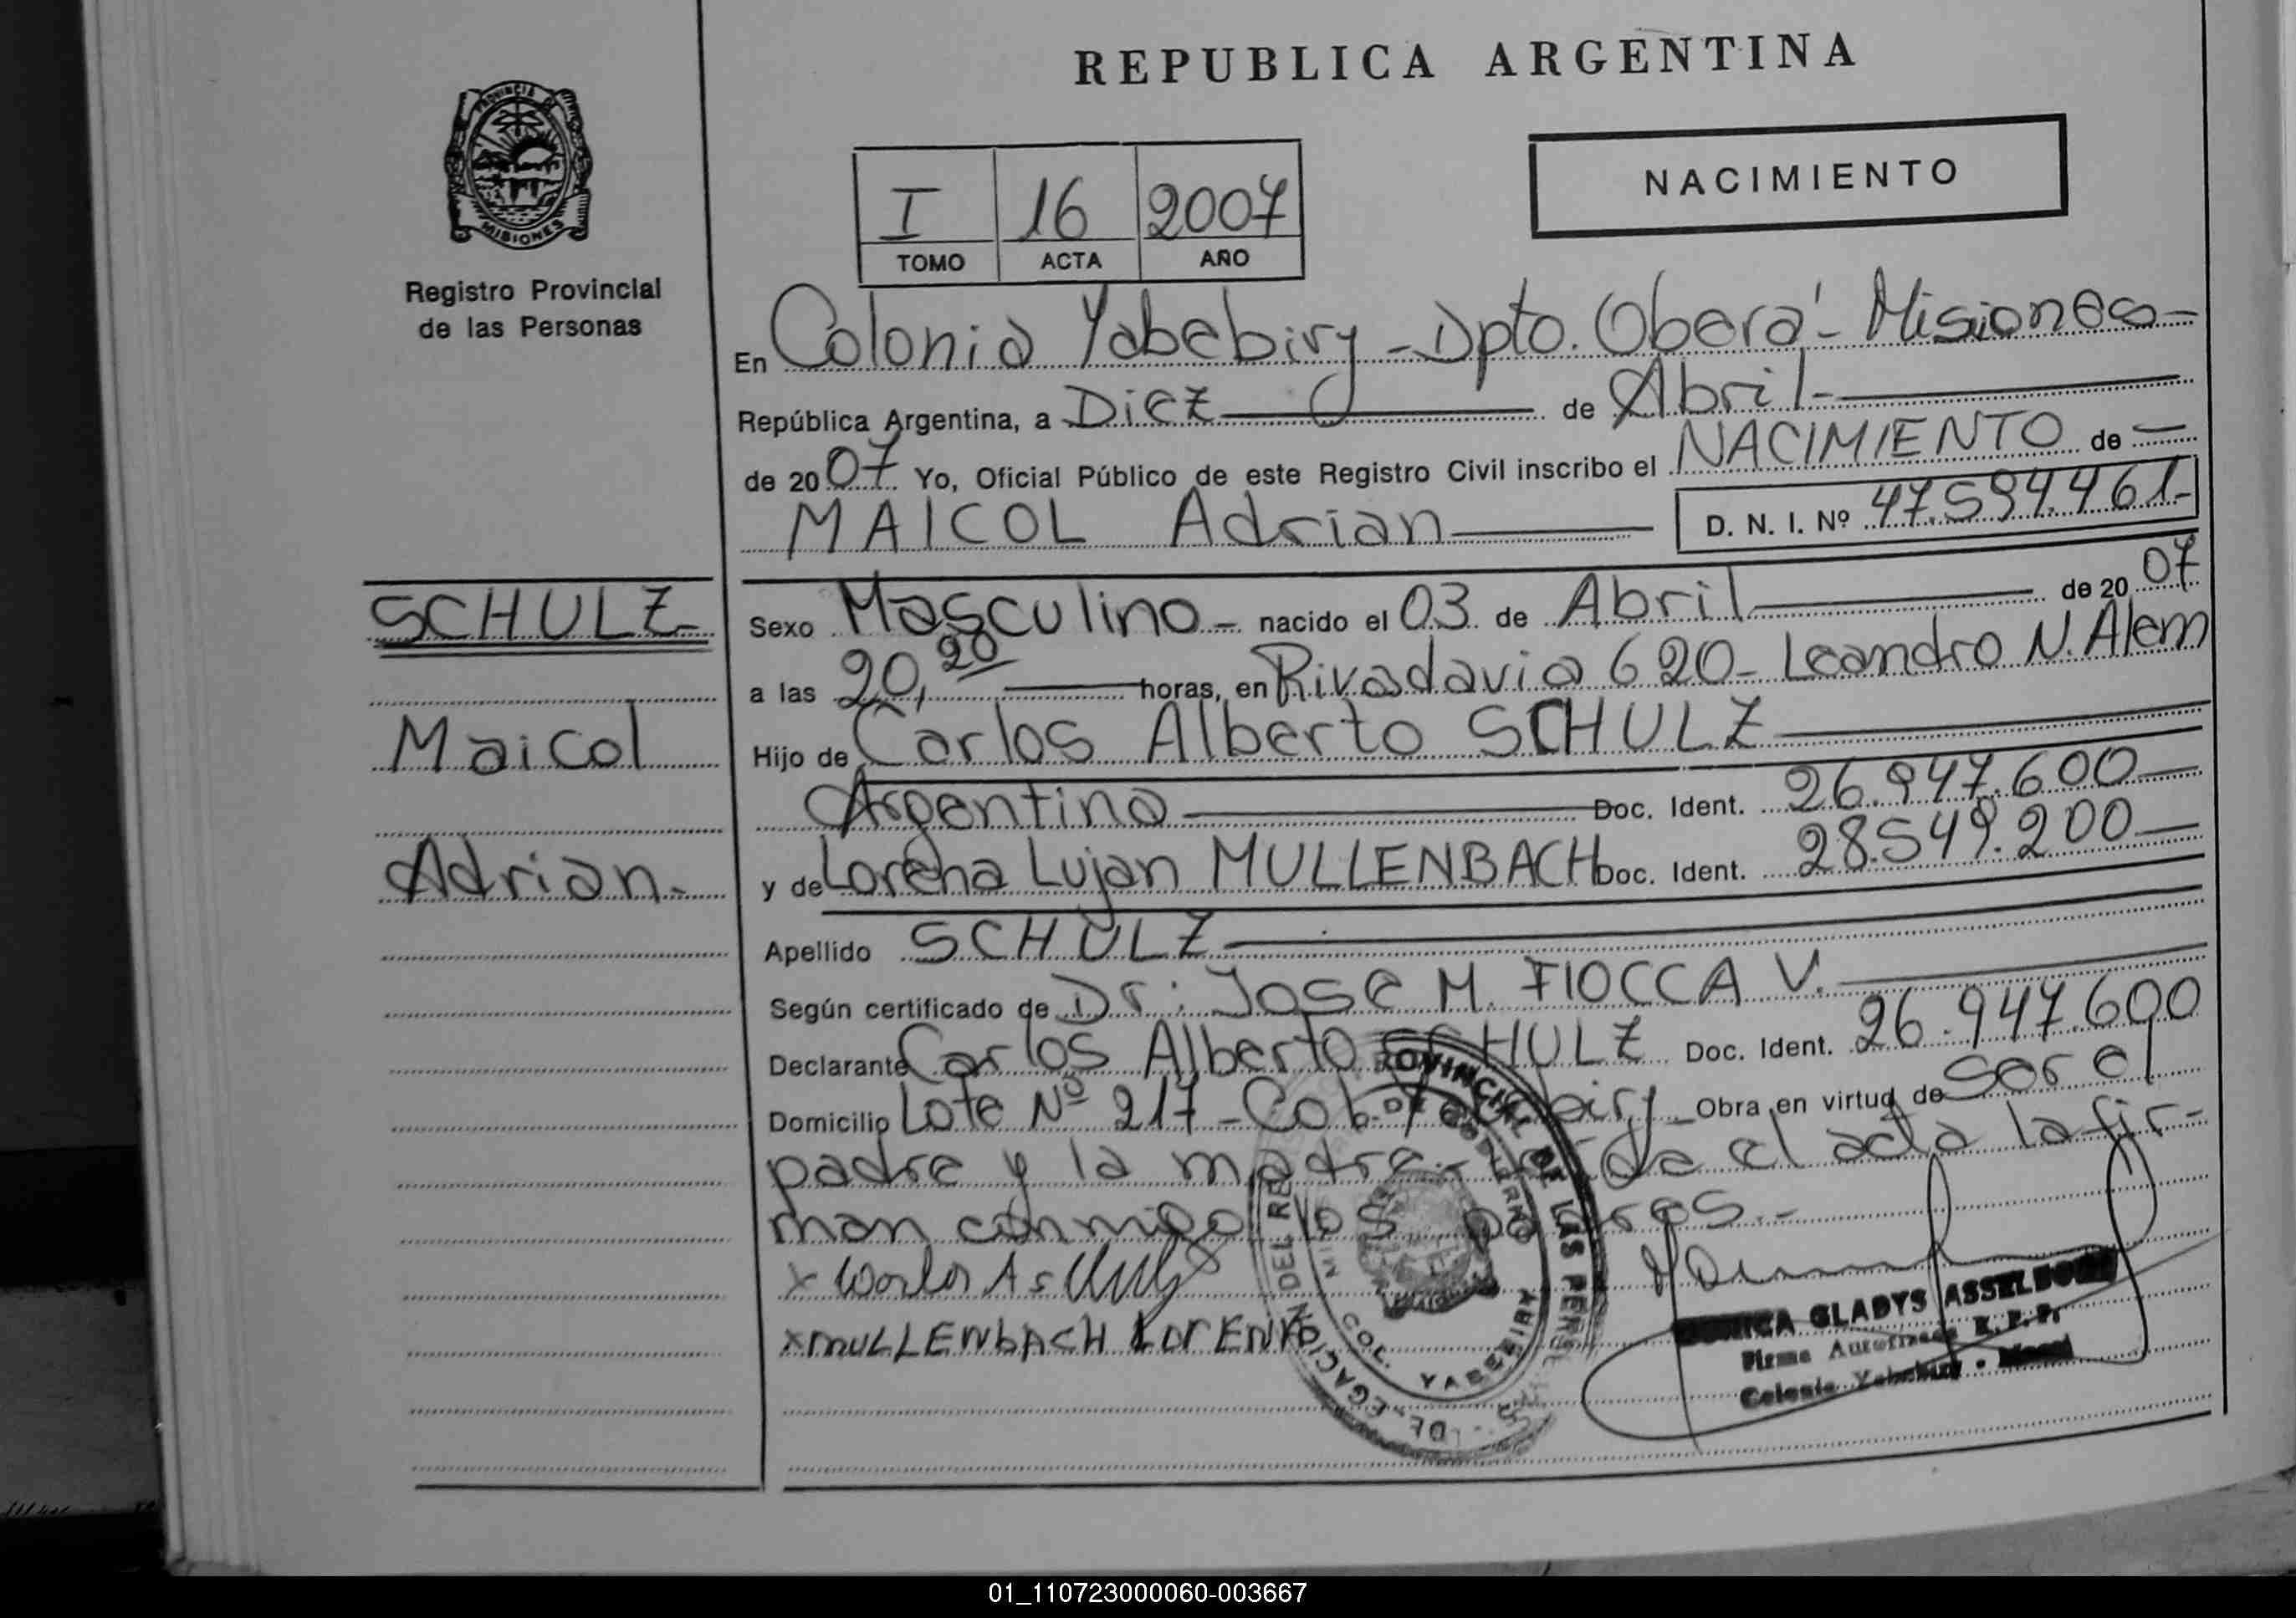 REPUBLICA ARGENTINA
PROVINCIA DE
MISIONES
Registro Provincial
de las Personas
I 16 2007
TOMO ACTA AÑO
NACIMIENTO
En Colonia Yabebiry - Dpto. Oberá - Misiones -
República Argentina, a Diez de Abril -
de 2007 Yo, Oficial Público de este Registro Civil inscribo el NACIMIENTO de -
MAICOL Adrian D. N. I. Nº 47.594.461.-
SCHULZ.
Maicol
Adrian.-
Sexo Masculino - nacido el 03 de Abril de 2007
a las 20,20 horas, en Rivadavia 620 - Leandro N. Alem
Hijo de Carlos Alberto SCHULZ
Argentina Doc. Ident. 26.947.600
y de Lorena Lujan MULLENBACH Doc. Ident. 28.549.200
Apellido SCHULZ
Según certificado de Dr: Jose M. FIOCCA V.
Declarante Carlos Alberto SCHULZ Doc. Ident. 26.947.600
Domicilio Lote Nº 217 - Col. Obra en virtud de ser el
padre y la madre. el acta la fir-
man conmigo los padres.-
x MULLENbACH LORENA
GLADYS
Firma Autorizada R. P. P.
Colonia Yabebiry
DELEGACION DEL REGISTRO PROVINCIAL DE LAS PERSONAS
COL. YABEBIRY
01_110723000060-003667